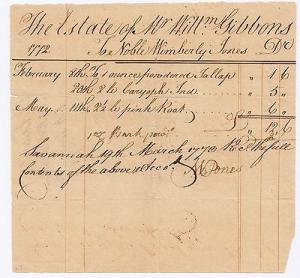 The Estate of Mr Wm Gibbons
1772 To Noble Wimberly Jones Dr
February 8th To 1 ounce powdered Jallap " 1 6
20th 2 Caryoph Ind " 5 "
May 11th 2 pink Root " 6
" 12 6
Savannah 19th March 1773 Rec'd the full
Contents of the above Acco
NW Jones